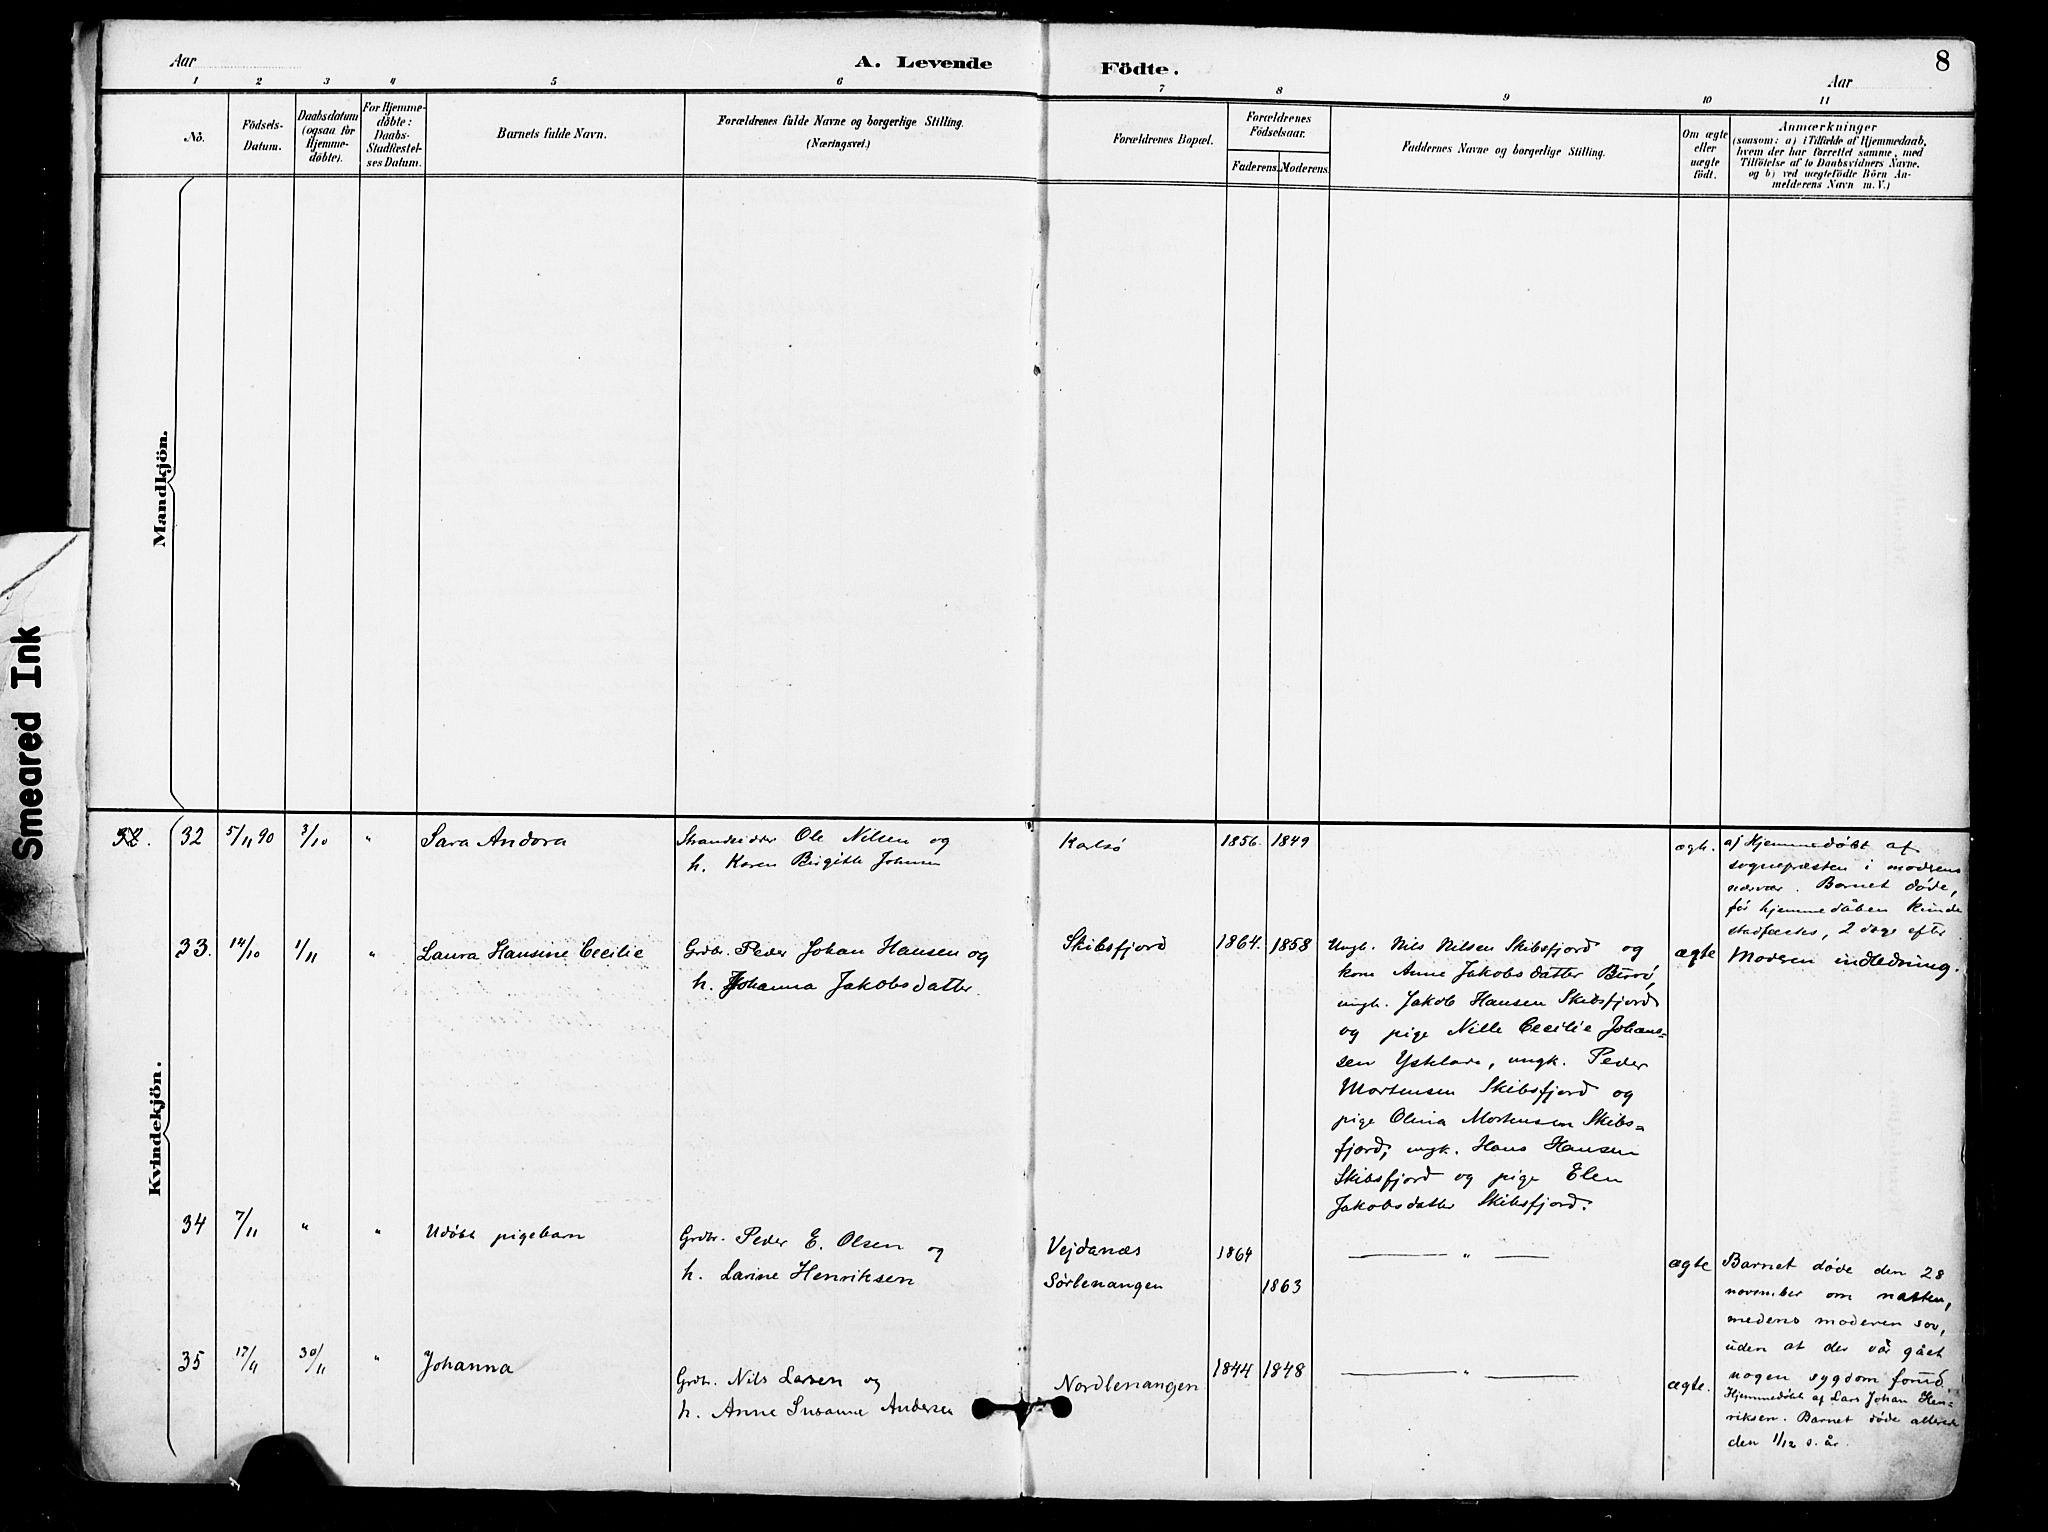 Smeared Ink
Aar
A. Levende
Födte.
Aar
8
1 2 3 4 5 6 7 8 9 10 11
No.
Födsels-
Datum.
Daabsdatum
(ogsaa for
Hjemme-
döbte).
For Hjemme-
döbte:
Daabs-
Stadfæstel-
ses Datum.
Barnets fulde Navn.
Forældrenes fulde Navne og borgerlige Stilling.
(Næringsvei.)
Forældrenes Bopæl.
Forældrenes
Födselsaar.
Faderens. Moderens.
Faddernes Navne og borgerlige Stilling.
Om ægte
eller
uægte
födt.
Anmærkninger
(saasom: a) i Tilfælde af Hjemmedaab,
hvem der har forrettet samme, med
Tilföielse af to Daabsvidners Navne,
og b) ved uægtefödte Börn An-
melderens Navn m. V.)
Mandkjön.
Kvindekjön.
32 5/11 90 3/10 " Sara Andora
Ole Nilsen og
h. Karen Birgith
Karlsö 1856. 1849
a) Hjemmedøbt af
sognepræsten i modrens
nærvær. Barnet døde,
før hjemmedåben kunde
stadfæstes, 2 dage efter
Modren indledning.
33. 14/10 1/11 " Laura Hansine Cecilie
Grdbr. Peder Johan Hansen og
h. Johanna Jakobsdatter.
Skibsfjord 1864. 1858
Ungk. Nils Nilsen Skibsfjord og
kone Anne Jakobsdatter
ungk. Jakob Hansen Skibsfjord
og pige Nille Cecilie Johan-
sen ungk. Peder
Mortensen Skibsfjord og
pige Olina Mortensen Skibs=
fjord, ungk. Hans Hansen
Skibsfjord og pige Elen
Jakobsdatter Skibsfjord.
ægte
34 7/11 " " Udøbt pigebarn
Grdbr. Peder E. Olsen og
h. Larine Henriksen
Vejdanæs
Sørlenangen
1864
1863
"
ægte
Barnet døde den 28
november om natten,
medens moderen sov,
uden at der vår gået
nogen sygdom forud.
35 17/11 30/11 " Johanna
Grdbr. Nils Larsen og
h. Anne Susanne Andersen
Nordlenangen 1844 1848
"
ægte.
Hjemmedøbt af Lars Johan Hen-
riksen. Barnet døde allerede
den 1/12 s. år.